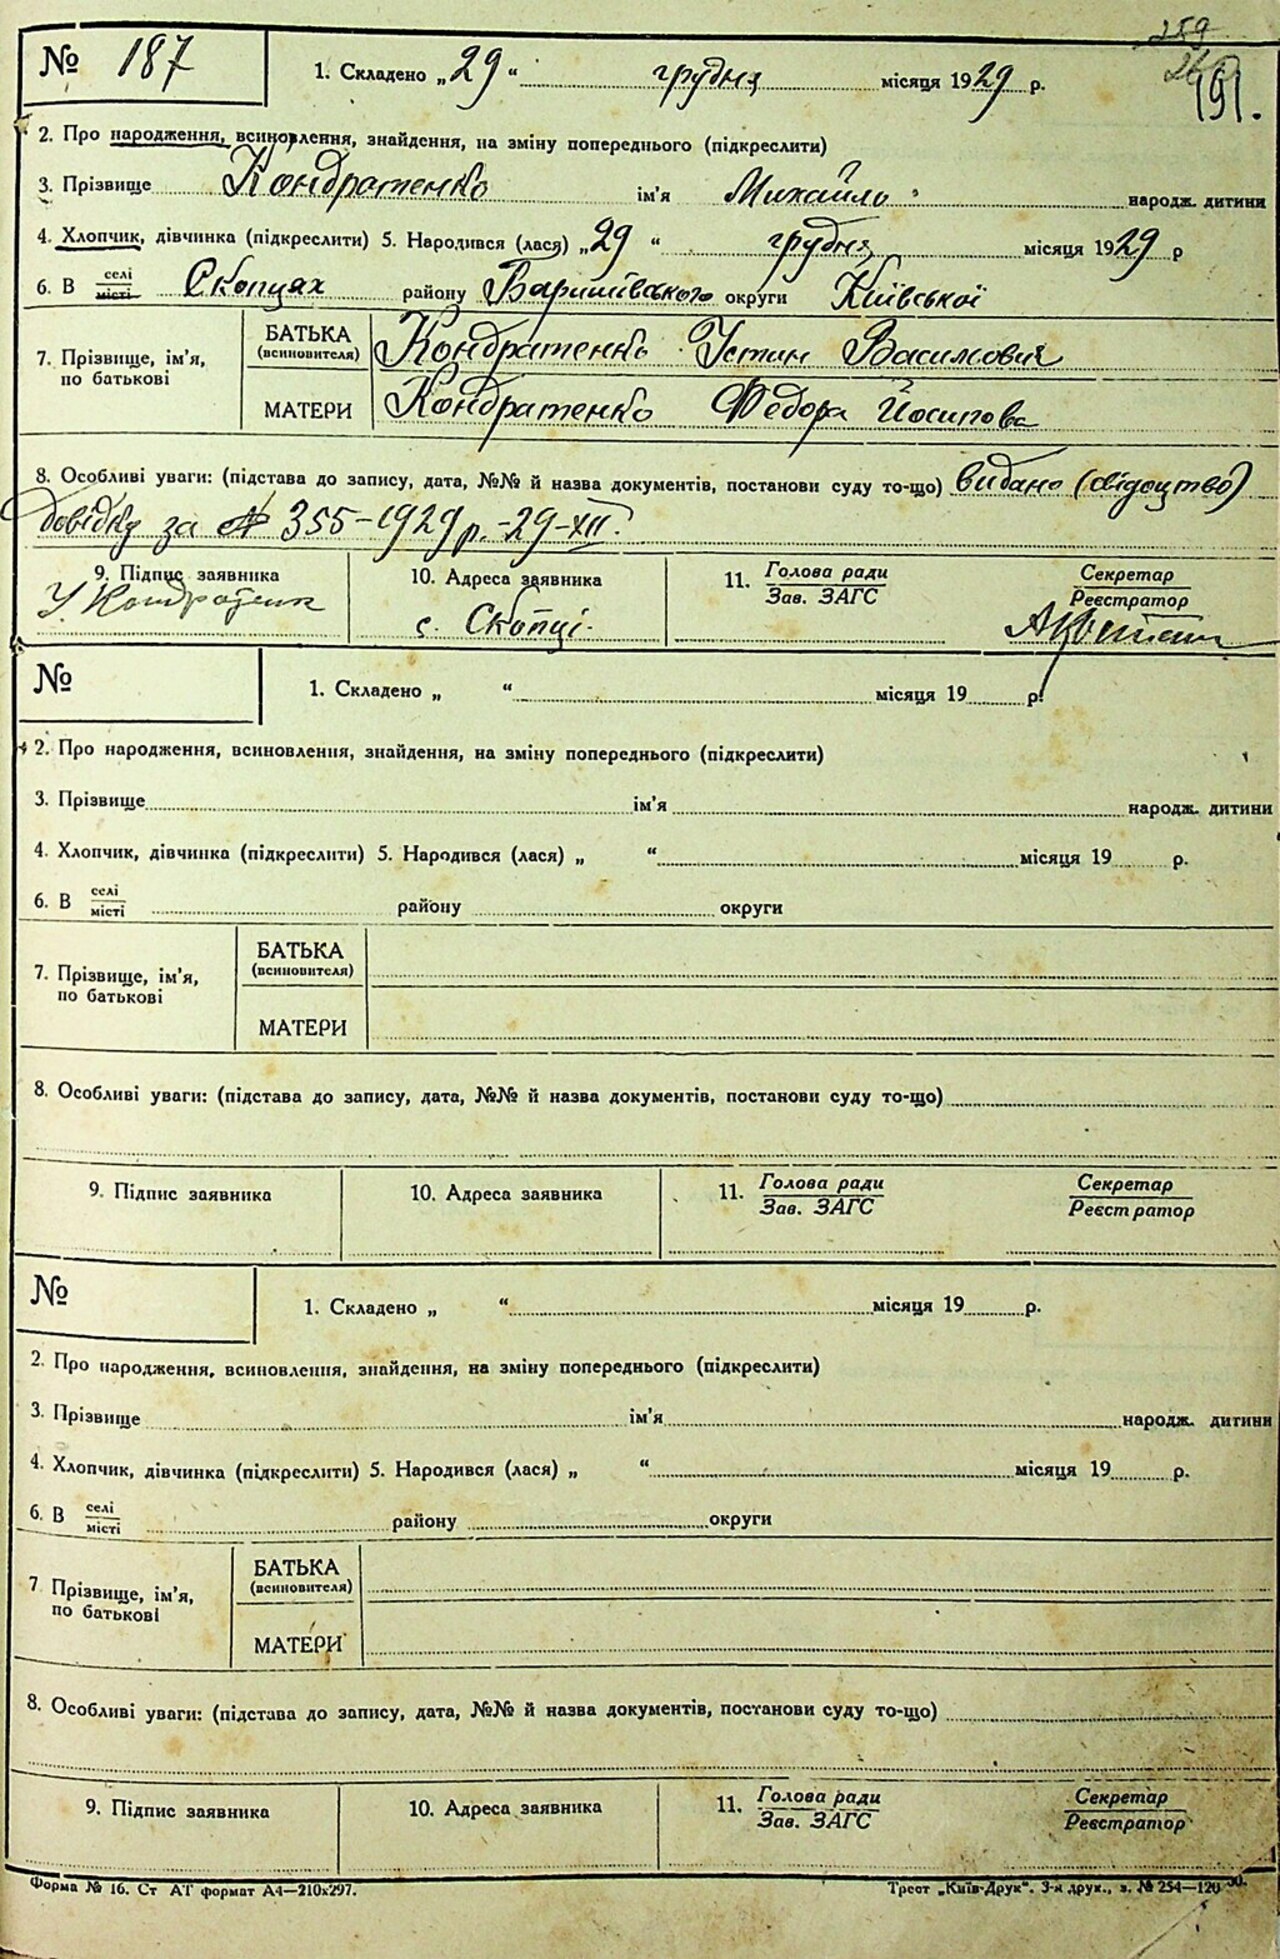 259
191.
№ 187
1. Складено „29“ грудня місяця 1929 р.
2. Про народження, всиновлення, знайдення, на зміну попереднього (підкреслити)
3. Прізвище Кондратенко ім'я Михайло народж. дитини
4. Хлопчик, дівчинка (підкреслити) 5. Народився (лася) „29“ грудня місяця 1929 р
6. В селі місті Скопцях району Баришівського округи Київської
7. Прізвище, ім'я, по батькові
БАТЬКА (всиновителя) Кондратенко Устин Васильович
МАТЕРИ Кондратенко Федора Йосипова
8. Особливі уваги: (підстава до запису, дата, №№ й назва документів, постанови суду то-що) видано (свідоцтво)
довідку за № 355-1929 р.-29-XII.
9. Підпис заявника 10. Адреса заявника 11. Голова ради Зав. ЗАГС Секретар Реєстратор
У Кондратенк с. Скопці.
№
1. Складено „ “ місяця 19 р.
2. Про народження, всиновлення, знайдення, на зміну попереднього (підкреслити)
3. Прізвище ім'я народж. дитини
4. Хлопчик, дівчинка (підкреслити) 5. Народився (лася) „ “ місяця 19 р.
6. В селі місті району округи
7. Прізвище, ім'я, по батькові
БАТЬКА (всиновителя)
МАТЕРИ
8. Особливі уваги: (підстава до запису, дата, №№ й назва документів, постанови суду то-що)
9. Підпис заявника 10. Адреса заявника 11. Голова ради Зав. ЗАГС Секретар Реєстратор
№
1. Складено „ “ місяця 19 р.
2. Про народження, всиновлення, знайдення, на зміну попереднього (підкреслити)
3. Прізвище ім'я народж. дитини
4. Хлопчик, дівчинка (підкреслити) 5. Народився (лася) „ “ місяця 19 р.
6. В селі місті району округи
7 Прізвище, ім'я, по батькові
БАТЬКА (всиновителя)
МАТЕРИ
8. Особливі уваги: (підстава до запису, дата, №№ й назва документів, постанови суду то-що)
9. Підпис заявника 10. Адреса заявника 11. Голова ради Зав. ЗАГС Секретар Реєстратор
Форма № 16. Ст АТ формат А4—210х297. Трест „Київ-Друк“. 3-я друк., з. № 254—120